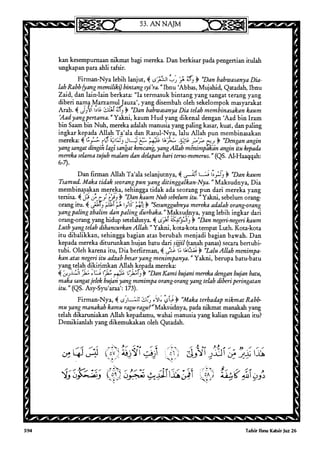 53. AN NAJM
kan kesempurnaan nikmat bagi mereka. Dan berkisar pada pengertian itulah
ungkapan para ahli tafsir.
Firman-Nya lebih lanjut, ﴾ وَأَنَّهُ هُوَ رَبُّ الشِّعْرَى ﴿ "Dan bahwasanya Dia-
lah Rabb (yang memiliki) bintang syi'ra." Ibnu 'Abbas, Mujahid, Qatadah, Ibnu
Zaid, dan lain-lain berkata: "Ia termasuk bintang yang sangat terang yang
diberi nama Marzamul Jauza', yang disembah oleh sekelompok masyarakat
Arab. ﴾ وَأَنَّهُ أَهْلَكَ عَادًا الْأُولَى ﴿ "Dan bahwasanya Dia telah membinasakan kaum
'Aad yang pertama." Yakni, kaum Hud yang dikenal dengan 'Aad bin Iram
bin Saam bin Nuh, mereka adalah manusia yang paling kasar, kuat, dan paling
ingkar kepada Allah Ta'ala dan Rasul-Nya, lalu Allah pun membinasakan
mereka: "Dengan angin
yang sangat dingin lagi sangat kencang, yang Allah menimpakan angin itu kepada
mereka selama tujuh malam dan delapan hari terus-menerus." (QS. Al-Haaqqah:
6-7).
Dan firman Allah Ta'ala selanjutnya, ﴾ وَثَمُودَ فَمَا أَبْقَى ﴿ "Dan kaum
Tsamud. Maka tidak seorang pun yang ditinggalkan-Nya." Maksudnya, Dia
membinasakan mereka, sehingga tidak ada seorang pun dari mereka yang
tersisa. ﴾ وَقَوْمَ نُوحٍ مِنْ قَبْلُ ﴿ "Dan kaum Nuh sebelum itu." Yakni, sebelum orang-
orang itu. ﴾ إِنَّهُمْ كَانُوا هُمْ أَظْلَمَ وَأَطْغَى ﴿ "Sesungguhnya mereka adalah orang-orang
yang paling zhalim dan paling durhaka." Maksudnya, yang lebih ingkar dari
orang-orang yang hidup setelahnya. ﴾ وَالْمُؤْتَفِكَةَ أَهْوَى ﴿ "Dan negeri-negeri kaum
Luth yang telah dihancurkan Allah." Yakni, kota-kota tempat Luth. Kota-kota
itu dibalikkan, sehingga bagian atas berubah menjadi bagian bawah. Dan
kepada mereka diturunkan hujan batu dari sijjil (tanah panas) secara bertubi-
tubi. Oleh karena itu, Dia berfirman, ﴾ فَغَشَّاهَا مَا غَشَّى ﴿ "Lalu Allah menimpa-
kan atas negeri itu adzab besar yang menimpanya." Yakni, berupa batu-batu
yang telah dikirimkan Allah kepada mereka:
﴾ وَأَمْطَرْنَا عَلَيْهِمْ مَطَرًا فَسَاءَ مَطَرُ الْمُنْذَرِينَ ﴿ "Dan Kami hujani mereka dengan hujan batu,
maka sangat jelek hujan yang menimpa orang-orang yang telah diberi peringatan
itu." (QS. Asy-Syu'araa': 173).
Firman-Nya, ﴾ فَبِأَيِّ آلَاءِ رَبِّكَ تَتَمَارَى ﴿ "Maka terhadap nikmat Rabb-
mu yang manakah kamu ragu-ragu?" Maksudnya, pada nikmat manakah yang
telah dikaruniakan Allah kepadamu, wahai manusia yang kalian ragukan itu?
Demikianlah yang dikemukakan oleh Qatadah.
هَٰذَا نَذِيرٌ مِنَ النُّذُرِ الْأُولَىٰ ﴿٥٦﴾ أَزِفَتِ الْآزِفَةُ ﴿٥٧﴾ لَيْسَ لَهَا مِنْ
دُونِ اللَّهِ كَاشِفَةٌ ﴿٥٨﴾ أَفَمِنْ هَٰذَا الْحَدِيثِ تَعْجَبُونَ ﴿٥٩﴾ وَتَضْحَكُونَ وَلَا
594
Tafsir Ibnu Katsir Juz 26